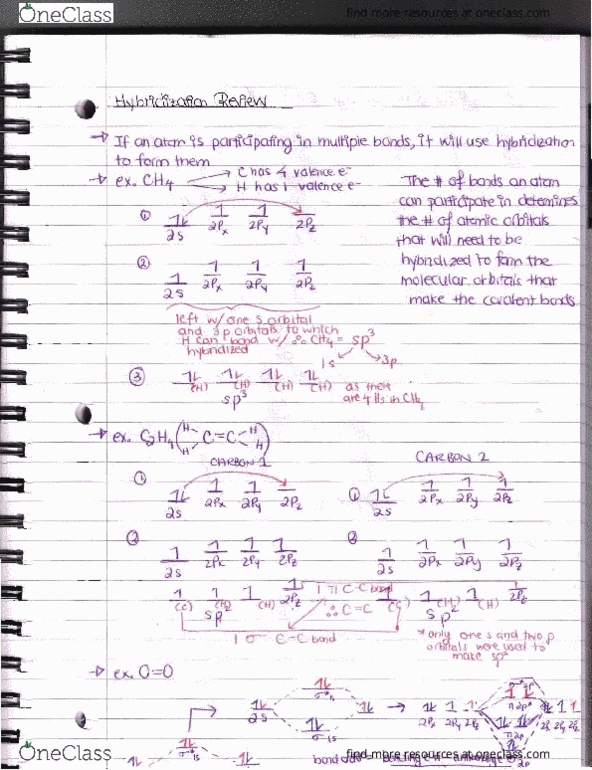 OneClass
find more resources at oneclass.com
Hybridization Review
→ If an atom is participating in multiple bonds, it will use hybridization
to form them
→ ex. CH4 → C has 4 valence e-
→ H has 1 valence e-
The # of bonds an atom
can participate in determines
the # of atomic orbitals
that will need to be
hybridized to form the
molecular orbitals that
make the covalent bonds
① 2s 2Px 2Py 2Pz
② 2s 2Px 2Py 2Pz
left w/ one s orbital
and 3 p orbitals to which
H can bond w/ ∴ CH4 = sp3
hybridized
1s 3p
③ (H) (H) (H) (H)
sp3
as there
are 4 Hs in CH4
→ ex. C2H4 (H H C=C H H)
CARBON 1
CARBON 2
① 2s 2Px 2Py 2Pz
① 2s 2Px 2Py 2Pz
② 2s 2Px 2Py 2Pz
② 2s 2Px 2Py 2Pz
(C) (H) (H) 2Pz
1 π C-C bond
(C) (H) (H) 2Pz
∴ C=C
sp2
1 σ C-C bond
*only one s and two p
orbitals were used to
make sp2
→ ex. O=O
2s
2Px 2Py 2Pz
2Px 2Py 2Pz
OneClass
find more resources at oneclass.com